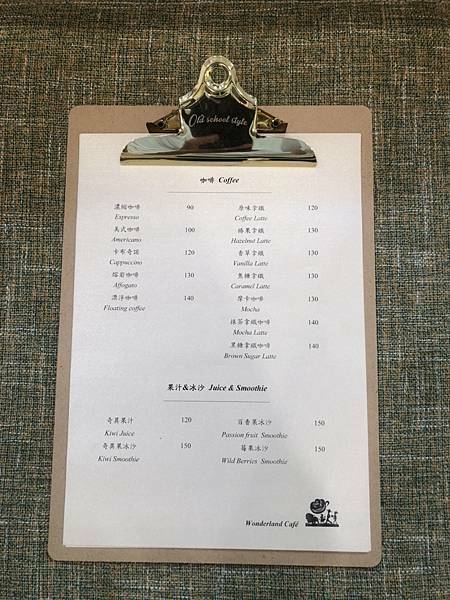 Old school style
咖啡 Coffee
濃縮咖啡 90
Espresso
美式咖啡 100
Americano
卡布奇諾 120
Cappuccino
熔岩咖啡 130
Affogato
漂浮咖啡 140
Floating coffee
原味拿鐵 120
Coffee Latte
榛果拿鐵 130
Hazelnut Latte
香草拿鐵 130
Vanilla Latte
焦糖拿鐵 130
Caramel Latte
摩卡咖啡 130
Mocha
抹茶拿鐵咖啡 140
Mocha Latte
黑糖拿鐵咖啡 140
Brown Sugar Latte
果汁&冰沙 Juice & Smoothie
奇異果汁 120
Kiwi Juice
奇異果冰沙 150
Kiwi Smoothie
百香果冰沙 150
Passion fruit Smoothie
莓果冰沙 150
Wild Berries Smoothie
Wonderland Café